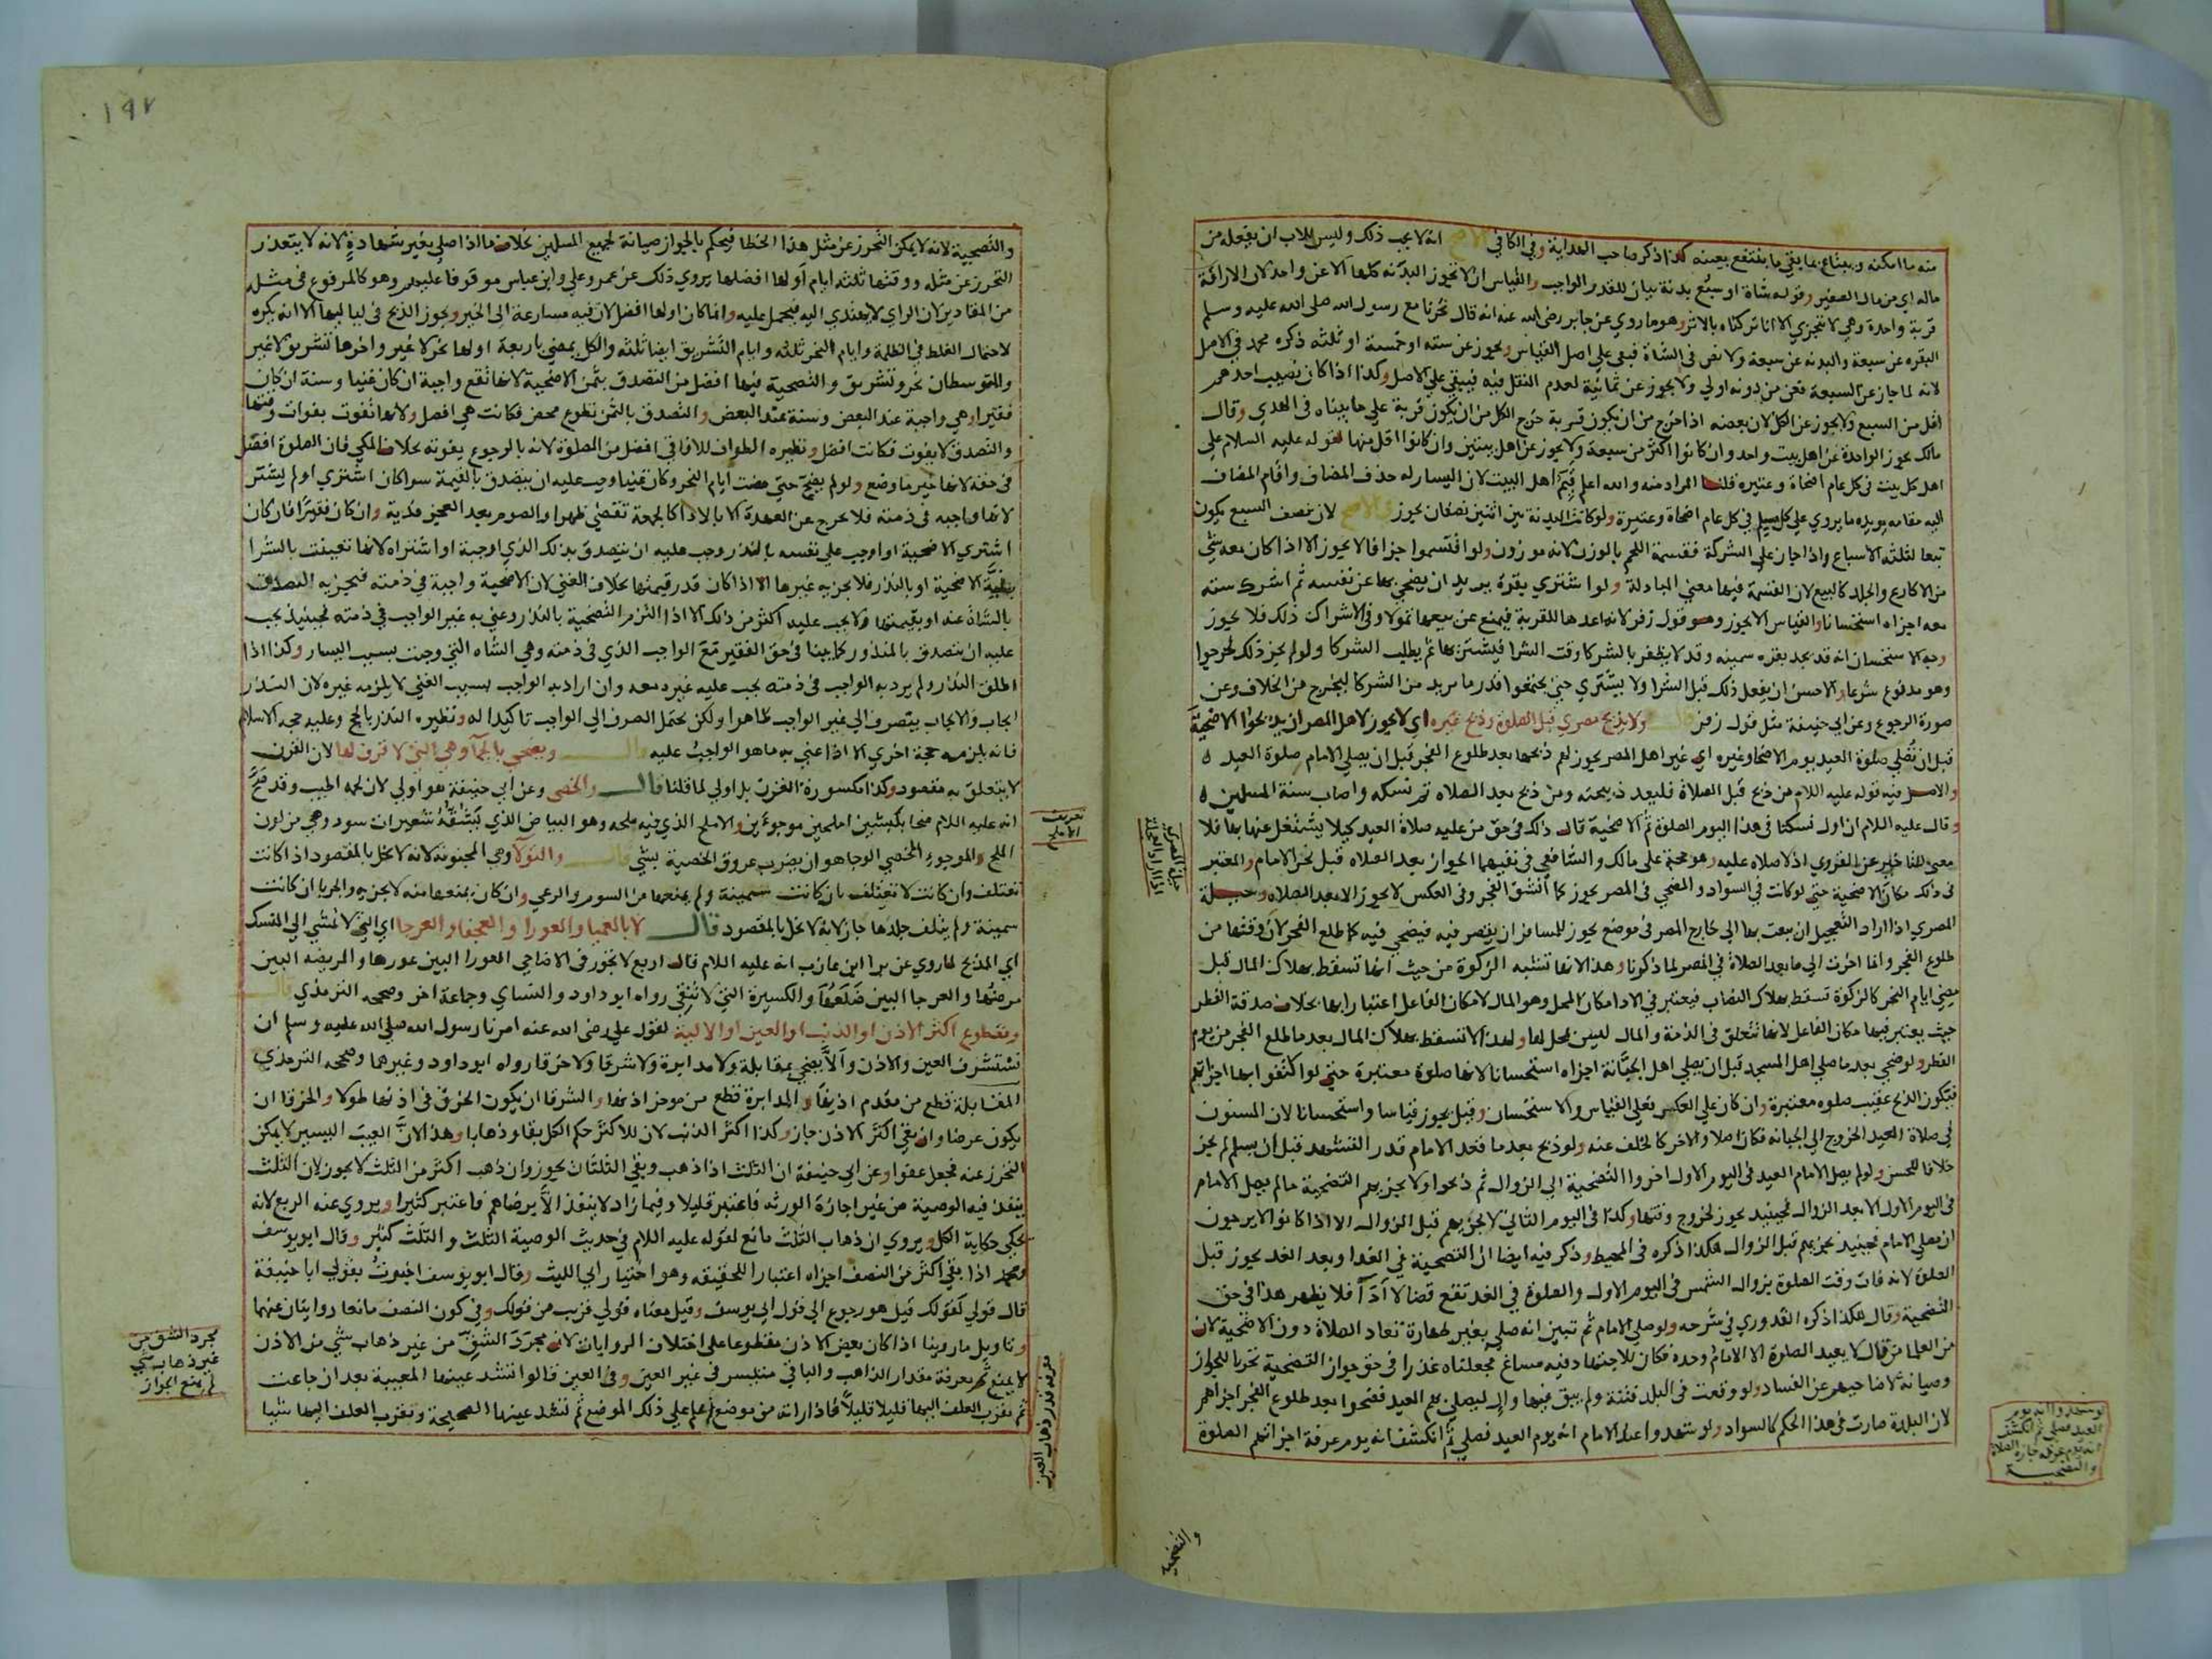 منه ما امكنه ويبتاع بما بقي ما ينتفع بعينه كذا ذكر صاحب الهداية وفي الكافي الاصح انه لا يجب ذلك وليس للاب ان يفعله من
ماله اي من مال الصغير وقوله شاة او سبع بدنة بيان للقدر الواجب والقياس ان لا تجوز البدنة كلها الا عن واحد لان الاراقة
قربة واحدة وهي لا تتجزي الا انا تركناه بالاثر وهو ما روي عن جابر رضي الله عنه انه قال نحرنا مع رسول الله صلى الله عليه وسلم
البقره عن سبعة والبدنه عن سبعة ولا نص في الشاة فبقى على اصل القياس ويجوز عن سته او خمسة او ثلثه ذكره محمد في الاصل
لانه لما جاز عن السبعة فعن من دونه اولي ولا يجوز عن ثمانية لعدم النقل فيه فيبقي على الاصل وكذا اذا كان نصيب احدهم
اقل من السبع ولا يجوز عن الكل لان بعضه اذا خرج من ان يكون قربة خرج الكل من ان يكون قربة على ما بيناه في الهدي وقال
مالك يجوز الواحدة عن اهل بيت واحد وان كانوا اكثر من سبعة ولا يجوز عن اهل بيتين وان كانوا اقل منها لقوله عليه السلام على
اهل كل بيت في كل عام اضحاة وعتيره قلنا المراد منه والله اعلم قيم اهل البيت لان اليسار له حذف المضاف واقام المضاف
اليه مقامه يويده ما يروي على كل مسلم في كل عام اضحاة وعتيرة ولو كانت البدنة بين اثنين نصفان يجوز والاصح لان نصف السبع يكون
تبعا لثلثه الاسباع واذا جاز على الشركة فقسمة اللحم بالوزن لانه موزون ولو اقتسموا جزافا لا يجوز الا اذا كان معه شي
من الاكارع والجلد كالبيع لان القسمة فيها معني المبادلة ولو اشتري بقرة يريد ان يضحي بها عن نفسه ثم اشرك سته
معه اجزاه استحسانا والقياس لا يجوز وهو قول زفر لانه اعدها للقربة فيمنع عن بيعها تمولا وفي الاشراك ذلك فلا يجوز
وجه الاستحسان انه قد يجد بقره سمينه وقد لا يظفر بالشركا وقت الشرا فيشتريها ثم يطلب الشركا ولو لم يجز ذلك لحرجوا
وهو مدفوع شرعا والاحسن ان يفعل ذلك قبل الشرا ولا يشتري حتى يجتمعوا قدر ما يريد من الشركا ليخرج من الخلاف وعن
صورة الرجوع وعن ابي حنيفة مثل قول زفر قال ولا يذبح مصري قبل الصلوة وذبح غيره اي لا يجوز لاهل المصر ان يذبحوا الاضحية
قبل ان تصلى صلوة العيد يوم الاضحى وغيره اي غير اهل المصر يجوز لهم ذبحها بعد طلوع الفجر قبل ان يصلي الامام صلوة العيد
والاصل فيه قوله عليه اللام من ذبح قبل الصلاة فليعد ذبيحته ومن ذبح بعد الصلاه تم نسكه واصاب سنة المسلمين
وقال عليه اللام ان اول نسكنا في هذا اليوم الصلوة ثم الاضحية قال ذلك في حق من عليه صلاة العيد كيلا يشتغل عنها بها فلا
معني للتاخير عن القروي اذ لا صلاه عليه وهو حجة على مالك والشافعي في نفيهما الجواز بعد الصلاه قبل نحر الامام والمعتبر
في ذلك مكان الاضحية حتى لو كانت في السواد والمضحي في المصر يجوز كما انشق الفجر وفي العكس لا يجوز الا بعد الصلاه وحيلة
المصري اذا اراد التعجيل ان يبعث بها الى خارج المصر في موضع يجوز للمسافر ان يقصر فيه فيضحي فيه كما طلع الفجر لان وقتها من
طلوع الفجر وانما اخرت الى ما بعد الصلاة في المصر لما ذكرنا وهذا لانها تشبه الزكوة من حيث انها تسقط بهلاك المال قبل
مضي ايام النحر كالزكوة تسقط بهلاك النصاب فيعتبر في الادا مكان المحل وهو المال لا مكان الفاعل اعتبارا بها بخلاف صدقة الفطر
حيث يعتبر فيها مكان الفاعل لانها تتعلق في الذمة والمال ليس بمحل لها ولهذا لا تسقط بهلاك المال بعد ما طلع الفجر من يوم
الفطر ولو ضحي بعد ما صلي اهل المسجد قبل ان يصلي اهل الجبانة اجزاه استحسانا لانها صلوة معتبرة حتى لو اكتفوا بها اجزاتهم
فيكون الذبح عقيب صلوه معتبرة وان كان علي العكس فعلى القياس والاستحسان وقيل يجوز قياسا واستحسانا لان المسنون
في صلاة العيد الخروج الى الجبانه فكان اصلا والاخر كالخلف عنه ولو ذبح بعد ما قعد الامام قدر التشهد قبل ان يسلم لم يجز
خلافا للحسن ولو لم يصل الامام العيد في اليوم الاول اخروا التضحية الى الزوال ثم ذبحوا ولا يجزيهم التضحية ما لم يصل الامام
في اليوم الاول الا بعد الزوال فحينيذ يجوز لخروج وقتها وكذا في اليوم الثاني لا يجزيهم قبل الزوال الا اذا كانوا لا يرجون
ان يصلي الامام فحينيذ يجزيهم قبل الزوال هكذا ذكره في المحيط وذكر فيه ايضا ان التضحية في الغد او بعد الغد يجوز قبل
الصلوة لانه فات وقت الصلوة بزوال الشمس في اليوم الاول والصلوة في الغد تقع قضا لا اداً فلا يظهر هذا في حق
التضحية وقال هكذا ذكره القدوري في شرحه ولو صلي الامام ثم تبين انه صلي بغير طهارة تعاد الصلاة دون الاضحية لان
من العلما من قال لا يعيد الصلوة الا الامام وحده فكان للاجتهاد فيه مساغ فجعلناه عذرا في حق جواز التضحية تحريا للجواز
وصيانة لاضاحيهم عن الفساد ولو وقعت في البلد فتنة ولم يبق فيها وال ليصلي بهم العيد فضحوا بعد طلوع الفجر اجزاهم
لان البلدة صارت في هذا الحكم كالسواد ولو شهدوا عند الامام انه يوم العيد فصلي ثم انكشف انه يوم عرفة اجزاتهم الصلوة
حيلة المصري
اذا اراد التعجيل
لو شهدوا انه يوم
العيد فصلي ثم انكشف
انه يوم عرفه جازت الصلاة
والتضحية
والتضحية
١٩٧
والتضحية لانه لا يمكن التحرز عن مثل هذا الخطا فيحكم بالجواز صيانة لجميع المسلمين بخلاف ما اذا صلي بغير شهادة لانه لا يتعذر
التحرز عن مثله ووقتها ثلثه ايام اولها افضلها يروي ذلك عن عمر وعلي وابن عباس موقوفا عليهم وهو كالمرفوع في مثله
من المقادير لان الراي لا يهتدي اليه فيحمل عليه وانما كان اولها افضل لان فيه مسارعة الى الخير ويجوز الذبح في لياليها الا انه يكره
لاحتمال الغلط في الظلمة وايام النحر ثلثه وايام التشريق ايضا ثلثه والكل يمضي باربعة اولها نحر لا غير واخرها تشريق لا غير
والمتوسطان نحر وتشريق والتضحية فيها افضل من التصدق بثمن الاضحية لانها تقع واجبة ان كان غنيا وسنة ان كان
فقيرا وهي واجبة عند البعض وسنة عند البعض والتصدق بالثمن تطوع محض فكانت هي افضل ولانها تفوت بفوات وقتها
والتصدق لا يفوت فكانت افضل ونظيره الطواف للافاقي افضل من الصلوة لانه بالرجوع يفوته بخلاف المكي فان الصلوة افضل
في حقه لانها خير ما وضع ولو لم يضح حتى مضت ايام النحر وكان غنيا وجب عليه ان يتصدق بالقيمة سوا كان اشتري او لم يشتر
لانها واجبه في ذمته فلا يخرج عن العهدة الا بالادا كالجمعة تقضي ظهرا والصوم بعد العجز فدية وان كان فقيرا فان كان
اشتري الاضحية او اوجب على نفسه بالنذر وجب عليه ان يتصدق بذلك الذي اوجبه او اشتراه لانها تعينت بالشرا
بنية الاضحية او بالنذر فلا يجزيه غيرها الا اذا كان قدر قيمتها بخلاف الغني لان الاضحية واجبة في ذمته فيجزيه التصدق
بالشاة عنه او بقيمتها ولا يجب عليه اكثر من ذلك الا اذا التزم التضحية بالنذر وعني به غير الواجب في ذمته فحينيذ يجب
عليه ان يتصدق بالمنذور كما بينا في حق الفقير مع الواجب الذي في ذمته وهي الشاه التي وجبت بسبب اليسار وكذا اذا
اطلق النذر ولم يرد به الواجب في ذمته يجب عليه غيره معه وان اراد به الواجب بسبب الغني لا يلزمه غيره لان النذر
ايجاب والايجاب ينصرف الى غير الواجب ظاهرا ولكن يحتمل الصرف الى الواجب تاكيدا له ونظيره النذر بالحج وعليه حجه الاسلام
فانه يلزمه حجة اخري الا اذا عني به ما هو الواجب عليه قال ويضحي بالجما وهي التي لا قرن لها لان القرن
لا يتعلق به مقصود وكذا مكسورة القرن بل اولي لما قلنا قال والخصي وعن ابي حنيفة هو اولي لان لحمه اطيب وقد صح
انه عليه اللام ضحا بكبشين املحين موجوءين والاملح الذي فيه ملحه وهو البياض الذي يشقه شعيرات سود وهي من لون
الملح والموجوء الخصي الوجا هو ان يضرب عروق الخصية بشي قال والثولا وهي المجنونه لانه لا يخل بالمقصود اذا كانت
تعتلف وان كانت لا تعتلف بان كانت سمينة ولم يمنعها من السوم والرعي وان كان يمنعها منه لا يجزيه والجربا ان كانت
سمينة ولم يتلف جلدها جاز لانه لا يخل بالمقصود قال لا بالعميا والعورا والعجفا والعرجا اي التي لا تمشي الى المنسك
اي المذبح لما روي عن برا ابن عازب انه عليه اللام قال اربع لا تجوز في الاضاحي العورا البين عورها والمريضه البين
مرضها والعرجا البين ضلعها والكسيرة التي لا تنقي رواه ابو داود والنساي وجماعة اخر وصححه الترمذي قال
ومقطوع اكثر الاذن او الذنب او العين او الالية لقول علي رضي الله عنه امرنا رسول الله صلي الله عليه وسلم ان
نستشرف العين والاذن والا نضحي بمقابلة ولا مدابرة ولا شرقا ولا خرقا رواه ابو داود وغيرهما وصححه الترمذي
المقابلة قطع من مقدم اذنها والمدابرة قطع من موخر اذنها والشرقا ان يكون الخرق في اذنها طولا والخرقا ان
يكون عرضا وان بقي اكثر الاذن جاز وكذا اكثر الذنب لان للاكثر حكم الكل بقا وذهابا وهذا لان العيب اليسير لا يمكن
التحرز عنه فجعل عفوا وعن ابي حنيفة ان الثلث اذا ذهب وبقي الثلثان يجوز وان ذهب اكثر من الثلث لا يجوز لان الثلث
ينفذ فيه الوصية من غير اجازة الورثه فاعتبر قليلا وفيما زاد لا ينفذ الا برضاهم فاعتبر كثيرا ويروي عنه الربع لانه
يحكي حكاية الكل ويروي ان ذهاب الثلث مانع لقوله عليه اللام في حديث الوصية الثلث والثلث كثير وقال ابو يوسف
ومحمد اذا بقي اكثر من النصف اجزاه اعتبارا للحقيقه وهو اختيار ابي الليث وقال ابو يوسف اخبرت بقولي ابا حنيفة
قال قولي كقولك قيل هو رجوع الى قول ابي يوسف وقيل معناه قولي قريب من قولك وفي كون النصف مانعا روايتان عنهما
وتاويل ما روينا اذا كان بعض الاذن مقطوعا على اختلاف الروايات لان مجرد الشق من غير ذهاب شي من الاذن
لا يمنع ثم معرفة مقدار الذاهب والباقي متيسر في غير العين وفي العين قالوا تشد عينها المعيبة بعد ان جاعت
ثم يقرب العلف اليها قليلا قليلا فاذا راته من موضع اعلم على ذلك الموضع ثم تشد عينها الصحيحة ويقرب العلف اليها شيا
تعريف
الاملح
مجرد الشق من
غير ذهاب شي
لم يمنع الجواز
معرفة قدر ذهاب العين